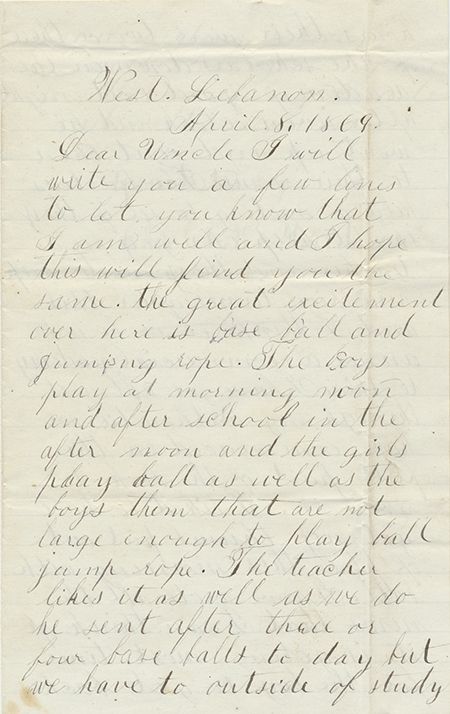 West. Lebanon.
April 8, 1869.
Dear Uncle I will
write you a few lines
to let you know that
I am well and I hope
this will find you the
same. the great excitement
over here is base ball and
jumping rope. The boys
play at morning noon
and after school in the
after noon and the girls
play ball as well as the
boys them that are not
large enough to play ball
jump rope. The teacher
likes it as well as we do
he sent after three or
four base balls to day but
we have to outside of study